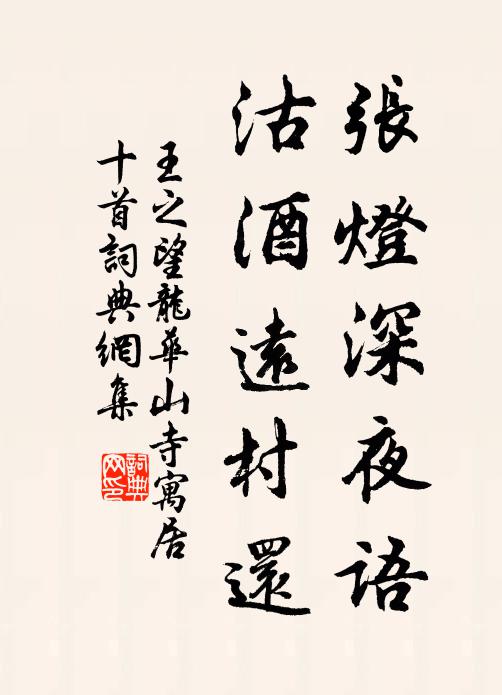 張燈深夜語
沽酒遠村還
王之望龍華山寺寓居
十首詞典網集
詞典
网印